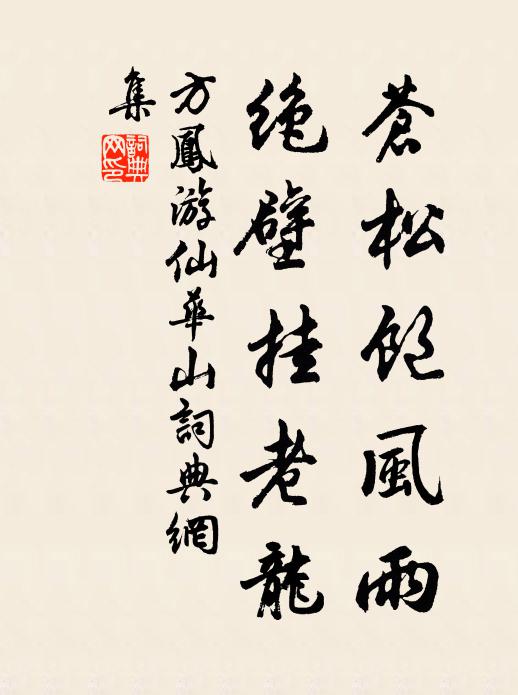 蒼松飽風雨
絶壁挂老龍
方鳳游仙華山詞典網
集
詞典網印